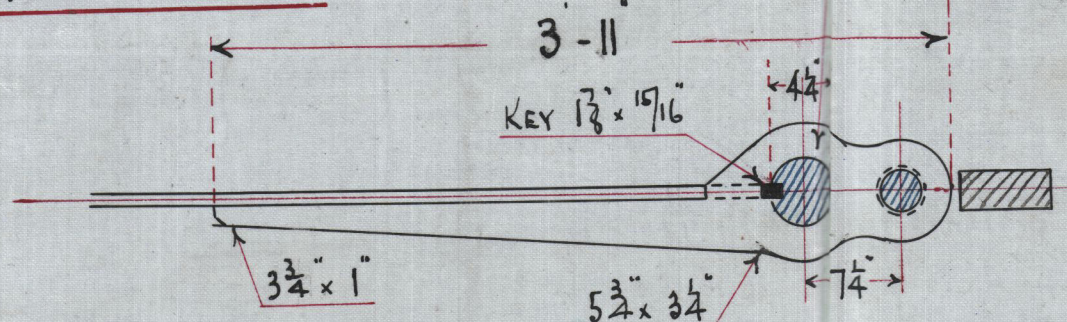 3'-11"
4 1/4"
KEY 1 7/8" x 15/16"
r
3 3/4" x 1"
5 3/4" x 3 1/4"
7 1/4"